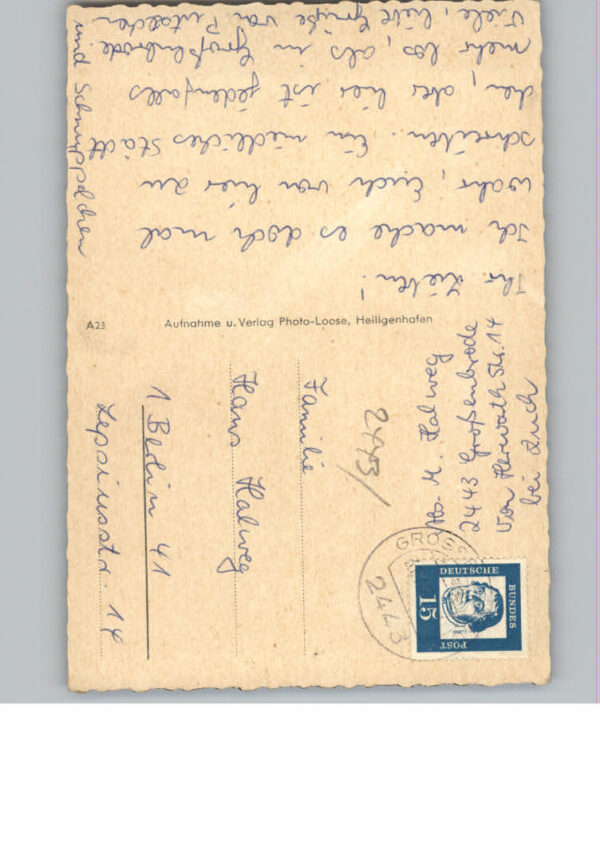 Ihr Lieben!
Ich mache es doch mal
wahr, Euch von hier zu
schreiben. Ein niedliches Städt
chen, aber hier ist jedenfalls
mehr los, als in Großenbrode
Viele, liebe Grüße von
und Schnuppelchen
A23
Aufnahme u. Verlag Photo-Loose, Heiligenhafen
Abs. M. Halweg
2443 Großenbrode
Von Herwarth Str. 14
bei Luch
2443/
Familie
Hans Halweg
1 Berlin 41
Lepsiusstr. 14
GROSS
2443
DEUTSCHE
BUNDES
POST
15